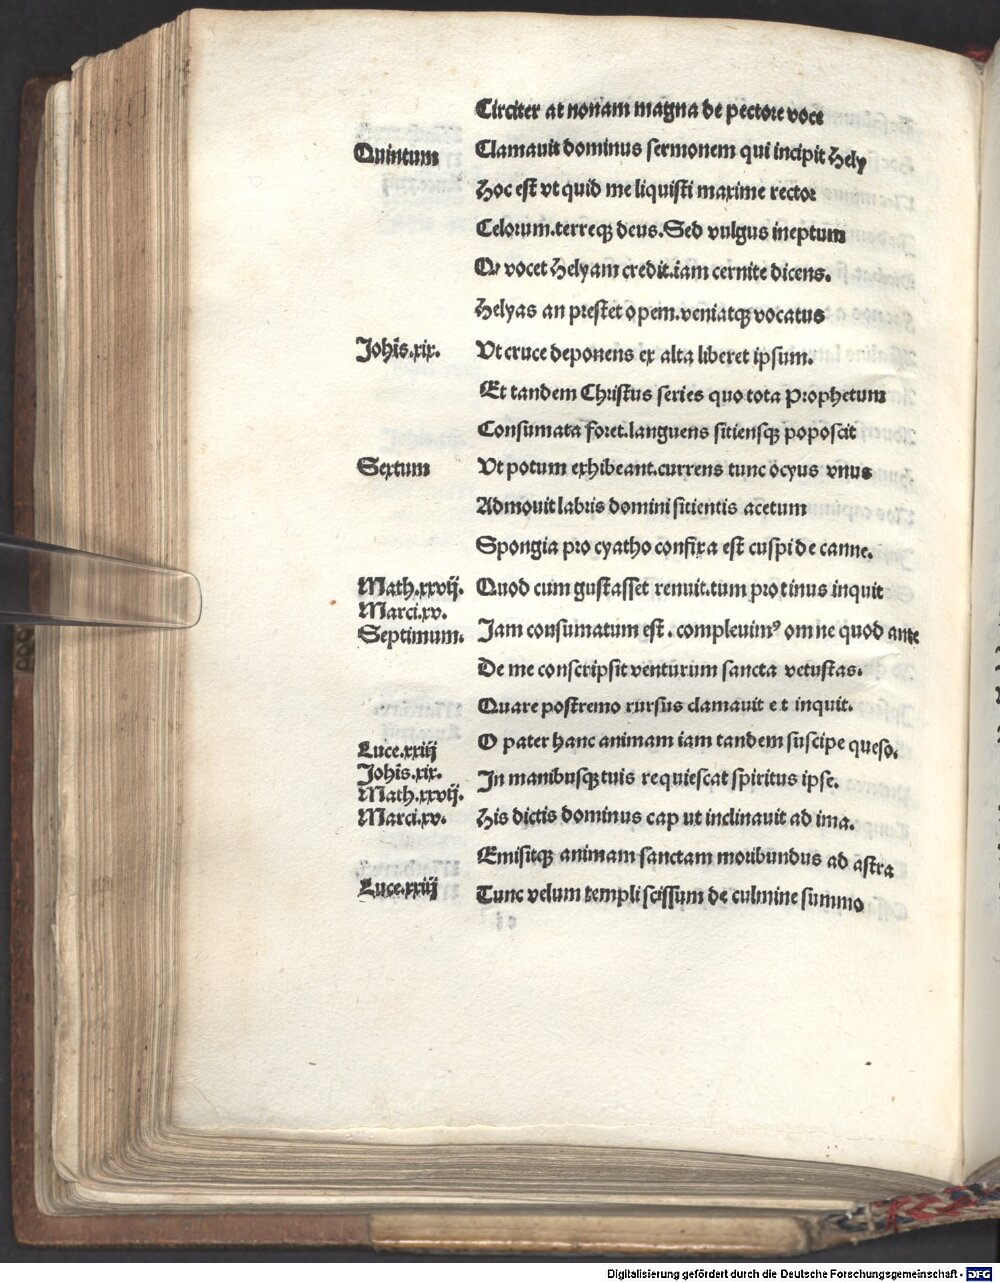 Circiter at nonam magna de pectore voce
Quintum Clamauit dominus sermonem qui incipit Hely
Hoc est vt quid me liquisti maxime rector
Celorum.terreqꝫ deus.Sed vulgus ineptum
Qꝫ vocet Helyam credit.iam cernite dicens.
Helyas an prestet opem.veniatqꝫ vocatus
Johis.xix. Vt cruce deponens ex alta liberet ipsum.
Et tandem Christus series quo tota Prophetum
Consumata foret.languens sitiensqꝫ poposcit
Sextum Vt potum exhibeant.currens tunc ocyus vnus
Admouit labris domini sitientis acetum
Spongia pro cyatho confixa est cuspide canne.
Math.xxvij. Quod cum gustasset renuit.tum protinus inquit
Marci.xv.
Septimum. Jam consumatum est. compleuimꝰ omne quod ante
De me conscripsit venturum sancta vetustas.
Quare postremo rursus clamauit et inquit.
Luce.xxiij O pater hanc animam iam tandem suscipe queso.
Johis.xix. In manibusqꝫ tuis requiescat spiritus ipse.
Math.xxvij.
Marci.xv. His dictis dominus caput inclinauit ad ima.
Emisitqꝫ animam sanctam moribundus ad astra
Luce.xxiij Tunc velum templi scissum de culmine summo
Digitalisierung gefördert durch die Deutsche Forschungsgemeinschaft - DFG